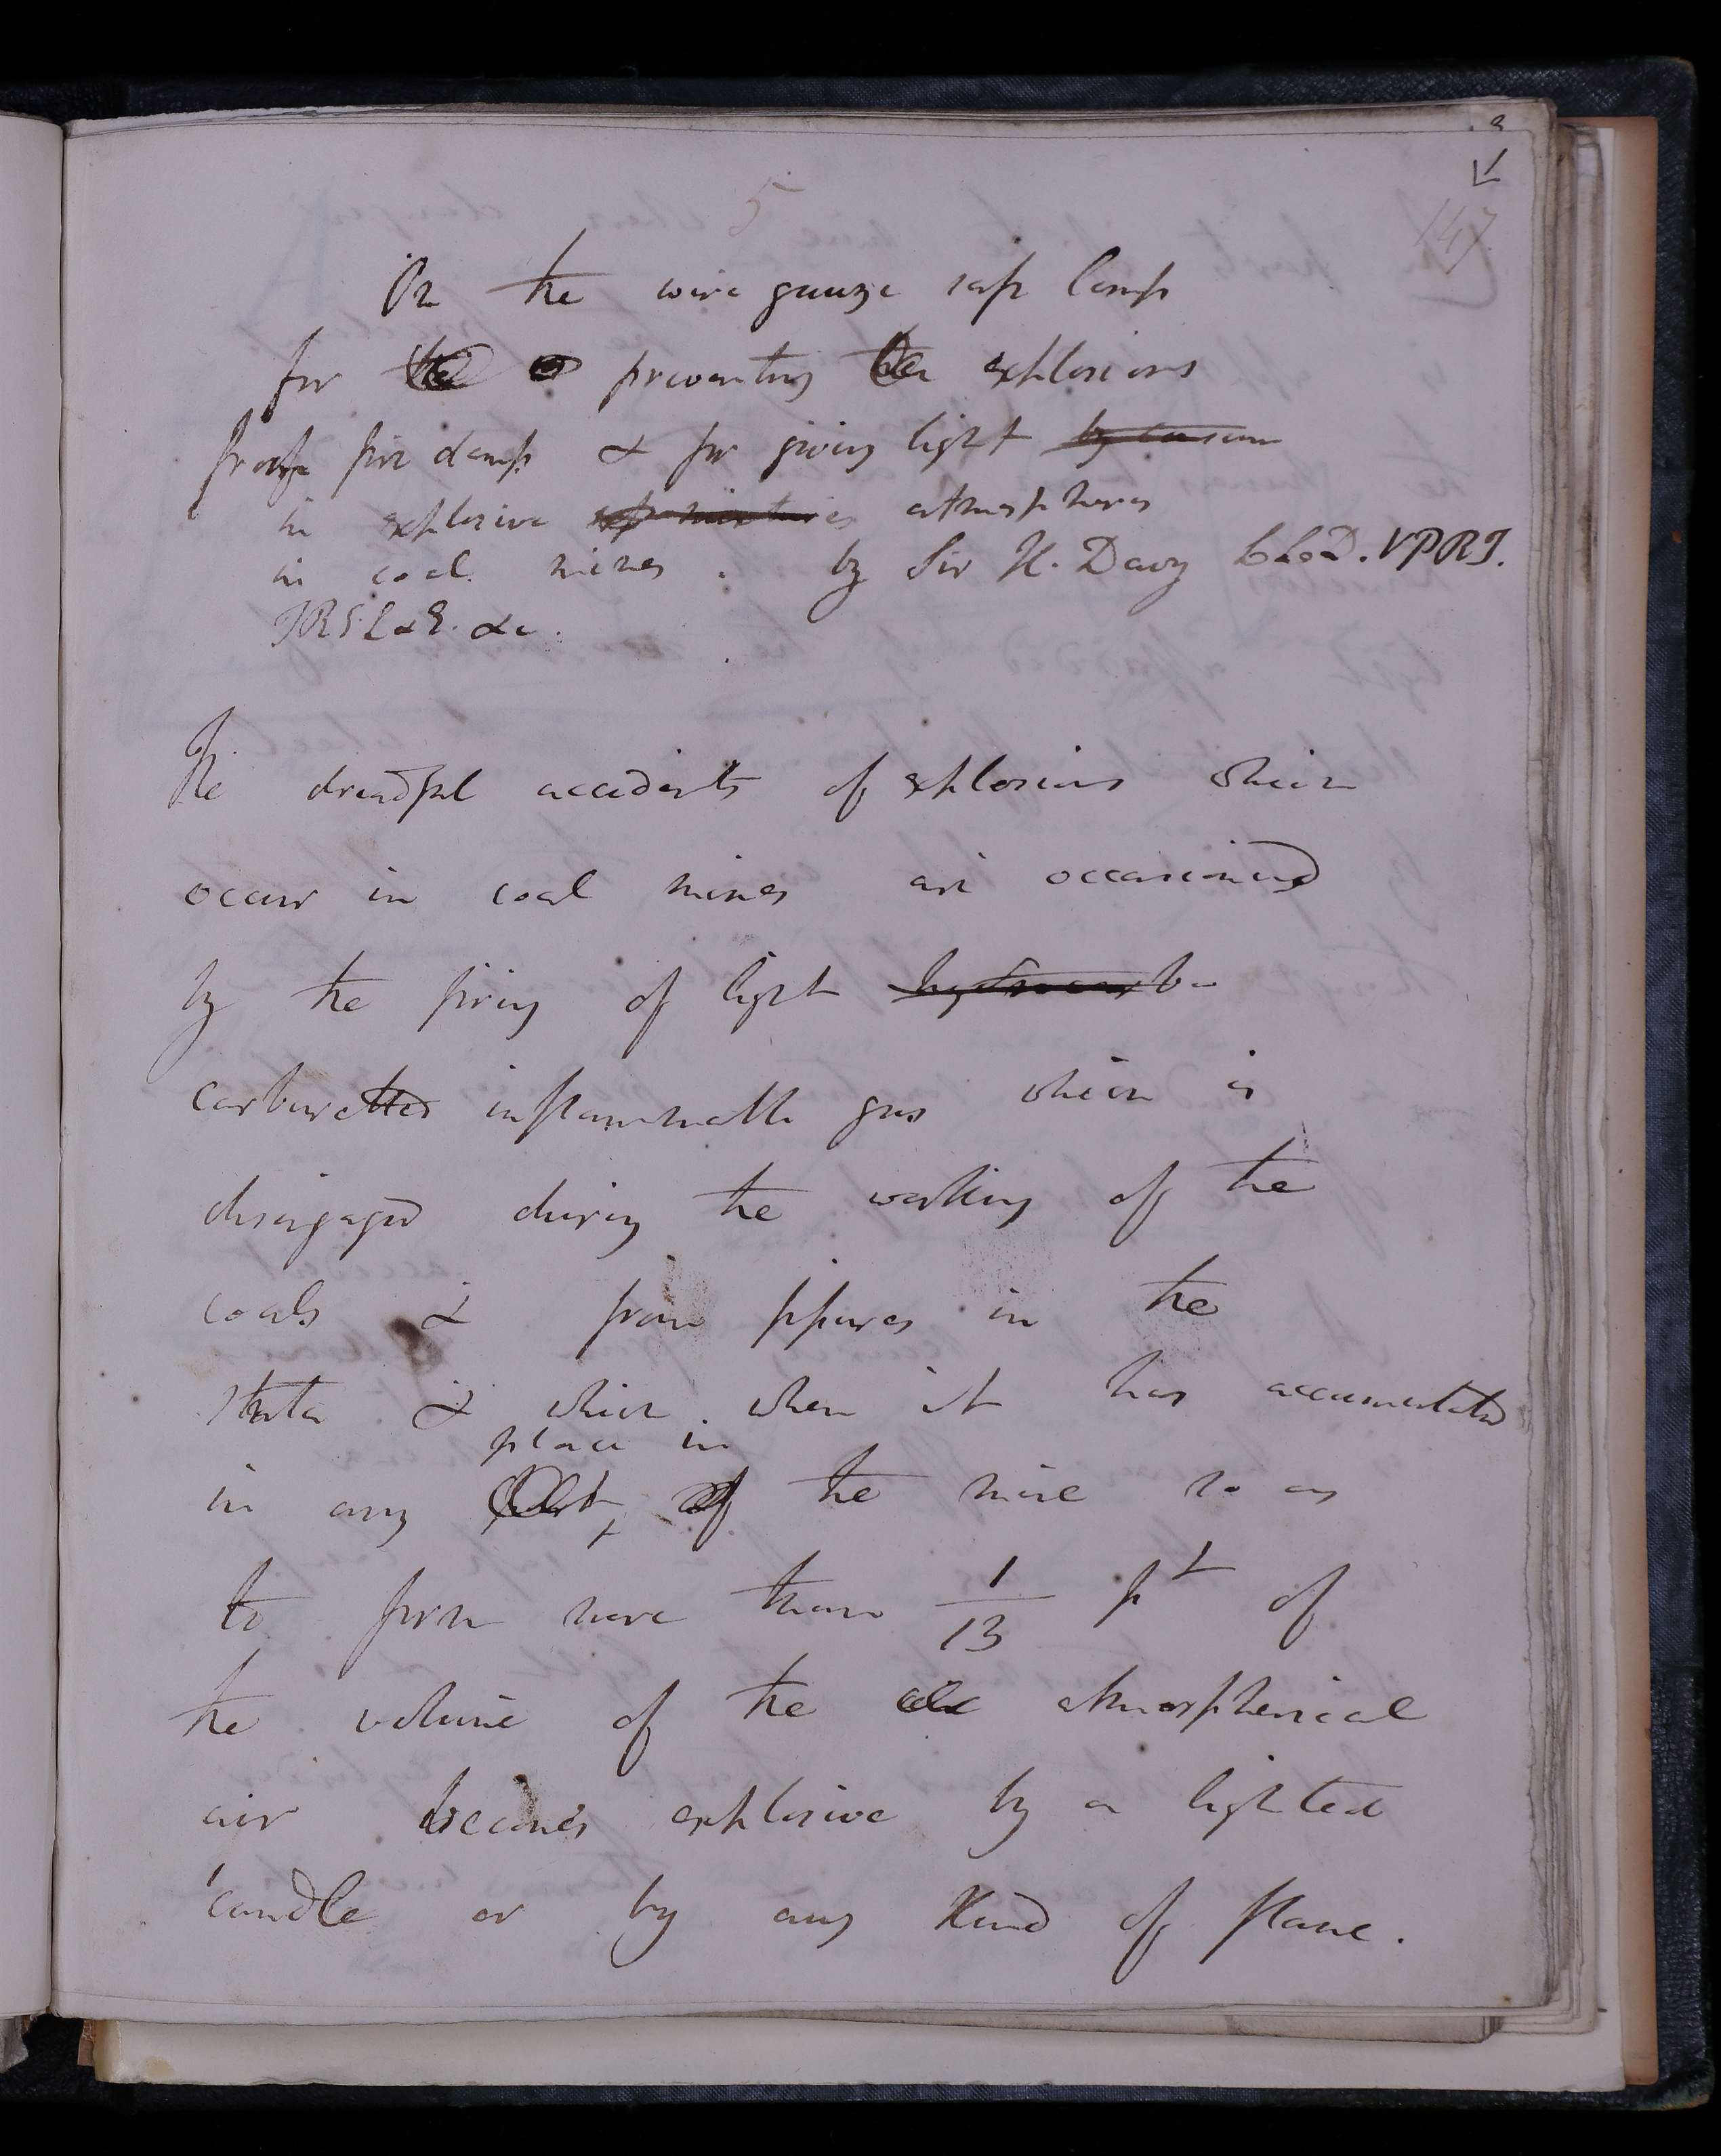 3
5
147
On the wire gauze safe lamp
for preventing explosions
from fire damp & for giving light
in explosive atmospheres
in coal mines. by Sir H. Davy LLD. VPRI.
FRS.L&E. &c.
The dreadful accidents of explosions which
occur in coal mines are occasioned
by the firing of light hydrocarb
carburetted inflammable gas which is
disengaged during the working of the
coals & from fissures in the
strata & which when it has accumulated
place in
in any of the mine so as
to form more than 1/13 pt of
the volume of the atmospherical
air becomes explosive by a lighted
candle or by any kind of flame.